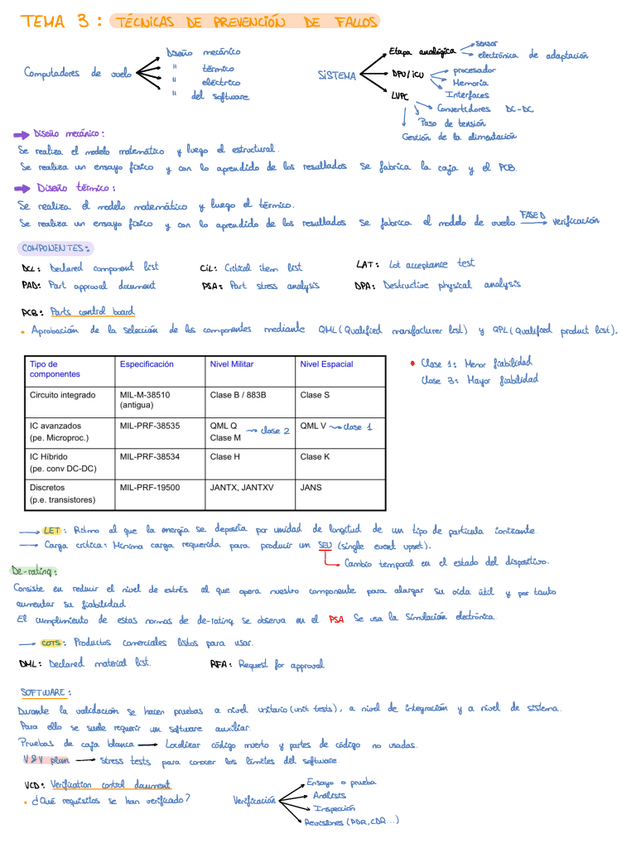 TEMA 3: TÉCNICAS DE PREVENCIÓN DE FALLOS
Computadores de vuelo
Diseño mecánico
" térmico
" eléctrico
" del software
SISTEMA
Etapa analógica
sensor
electrónica de adaptación
DPU/ICU
procesador
Memoria
Interfaces
LVPC
Convertidores DC-DC
Paso de tensión
Gestión de la alimentación
Diseño mecánico:
Se realiza el modelo matemático y luego el estructural.
Se realiza un ensayo físico y con lo aprendido de los resultados se fabrica la caja y el PCB.
Diseño térmico:
Se realiza el modelo matemático y luego el térmico.
Se realiza un ensayo físico y con lo aprendido de los resultados se fabrica el modelo de vuelo FASE D verificación
COMPONENTES:
DCL: Declared component list CIL: Critical item list LAT: Lot acceptance test
PAD: Part approval document PSA: Part stress analysis DPA: Destructive physical analysis
PCB: Parts control board
• Aprobación de la selección de los componentes mediante QML (Qualified manufacturer list) y QPL (Qualified product list).
Tipo de componentes Especificación Nivel Militar Nivel Espacial
Circuito integrado MIL-M-38510 (antigua) Clase B / 883B Clase S
IC avanzados (pe. Microproc.) MIL-PRF-38535 QML Q Clase M → clase 2 QML V → clase 1
IC Híbrido (pe. conv DC-DC) MIL-PRF-38534 Clase H Clase K
Discretos (p.e. transistores) MIL-PRF-19500 JANTX, JANTXV JANS
• Clase 1: Menor fiabilidad
Clase 3: Mayor fiabilidad
→ LET: Ritmo al que la energía se deposita por unidad de longitud de un tipo de partícula ionizante.
→ Carga crítica: Mínima carga requerida para producir un SEU (single event upset).
Cambio temporal en el estado del dispositivo.
De-rating:
Consiste en reducir el nivel de estrés al que opera nuestro componente para alargar su vida útil y por tanto
aumentar su fiabilidad.
El cumplimiento de estas normas de de-rating se observa en el PSA Se usa la simulación electrónica.
→ COTS: Productos comerciales listos para usar.
DML: Declared material list. RFA: Request for approval
SOFTWARE:
Durante la validación se hacen pruebas a nivel unitario (unit tests), a nivel de integración y a nivel de sistema.
Para ello se suele requerir un software auxiliar
Pruebas de caja blanca → Localizar código muerto y partes de código no usadas.
V&V plan → Stress tests para conocer los límites del software
VCD: Verification control document
• ¿Qué requisitos se han verificado?
Verificación
Ensayo o prueba
Análisis
Inspección
Revisiones (PDR, CDR...)